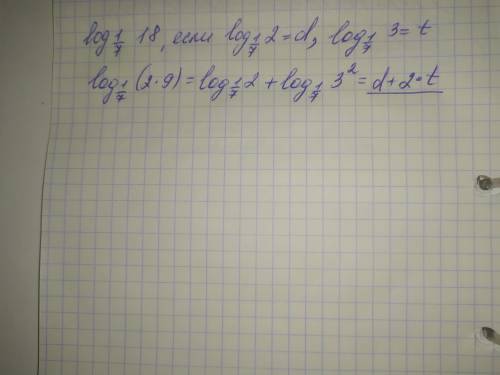 log_{1/7} 18, если log_{1/7} 2 = d, log_{1/7} 3 = t
log_{1/7} (2·9) = log_{1/7} 2 + log_{1/7} 3² = d + 2·t